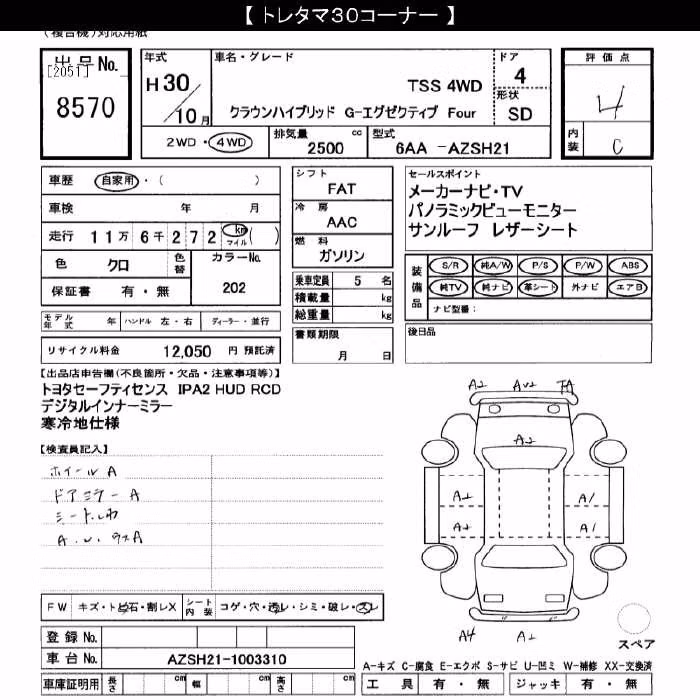 【 トレタマ30コーナー 】
(複合機)対応用紙
出品No.
[2051]
8570
年式
H 30
10 月
車名・グレード
TSS 4WD
クラウンハイブリッド G-エグゼクティブ Four
ドア
4
形状
SD
2WD・4WD
排気量
cc
2500
型式
6AA -AZSH21
評価点
4
内装
C
車歴 自家用・( )
車検 年 月
走行 11万 6千 272 km マイル ( )
色 クロ
色替
カラーNo.
202
保証書 有・無
モデル年式 年
ハンドル 左・右
ディーラー・並行
リサイクル料金 12,050 円 預託済
シフト
FAT
冷房
AAC
燃料
ガソリン
乗車定員 5 名
積載量 kg
総重量 kg
書類期限
月 日
セールスポイント
メーカーナビ・TV
パノラミックビューモニター
サンルーフ レザーシート
装備品
S/R 純A/W P/S P/W ABS
純TV 純ナビ 革シート 外ナビ エアB
ナビ型番:
後日品
【出品店申告欄(不良箇所・欠品・注意事項等)】
トヨタセーフティセンス IPA2 HUD RCD
デジタルインナーミラー
寒冷地仕様
【検査員記入】
ホイールA
ドアミラーA
シートしわ
A.U.ウスA
FW キズ・トビ石・割レX
シート内装 コゲ・穴・スレ・シミ・破レ・スレ
登録No.
車台No. AZSH21-1003310
車庫証明用 長さ cm 幅 cm 高さ cm
A2 AU2 TA
A2
A2 A1
A2 A1
A4 A2
スペア
A-キズ C-腐食 E-エクボ S-サビ U-凹ミ W-補修 XX-交換済
工具 有・無 ジャッキ 有・無